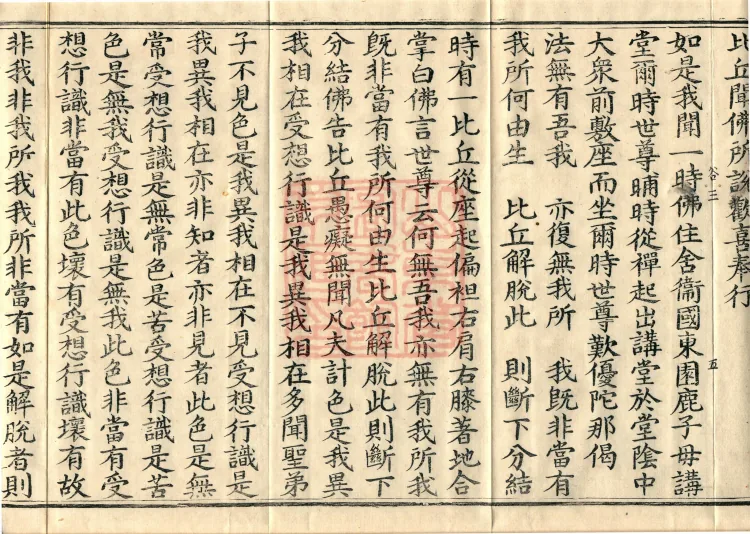 比丘聞佛所說歡喜奉行
如是我聞一時佛住舍衞國東園鹿子母講
堂爾時世尊晡時從禪起出講堂於堂陰中
大衆前敷座而坐爾時世尊歎優陀那偈
法無有吾我 亦復無我所 我旣非當有
我所何由生 比丘解脫此 則斷下分結
時有一比丘從座起偏袒右肩右膝著地合
掌白佛言世尊云何無吾我亦無有我所我
旣非當有我所何由生比丘解脫此則斷下
分結佛告比丘愚癡無聞凡夫計色是我異
我相在受想行識是我異我相在多聞聖弟
子不見色是我異我相在不見受想行識是
我異我相在亦非知者亦非見者此色是無
常受想行識是無常色是苦受想行識是苦
色是無我受想行識是無我此色非當有受
想行識非當有此色壞有受想行識壞有故
非我非我所我我所非當有如是解脫者則
三
五